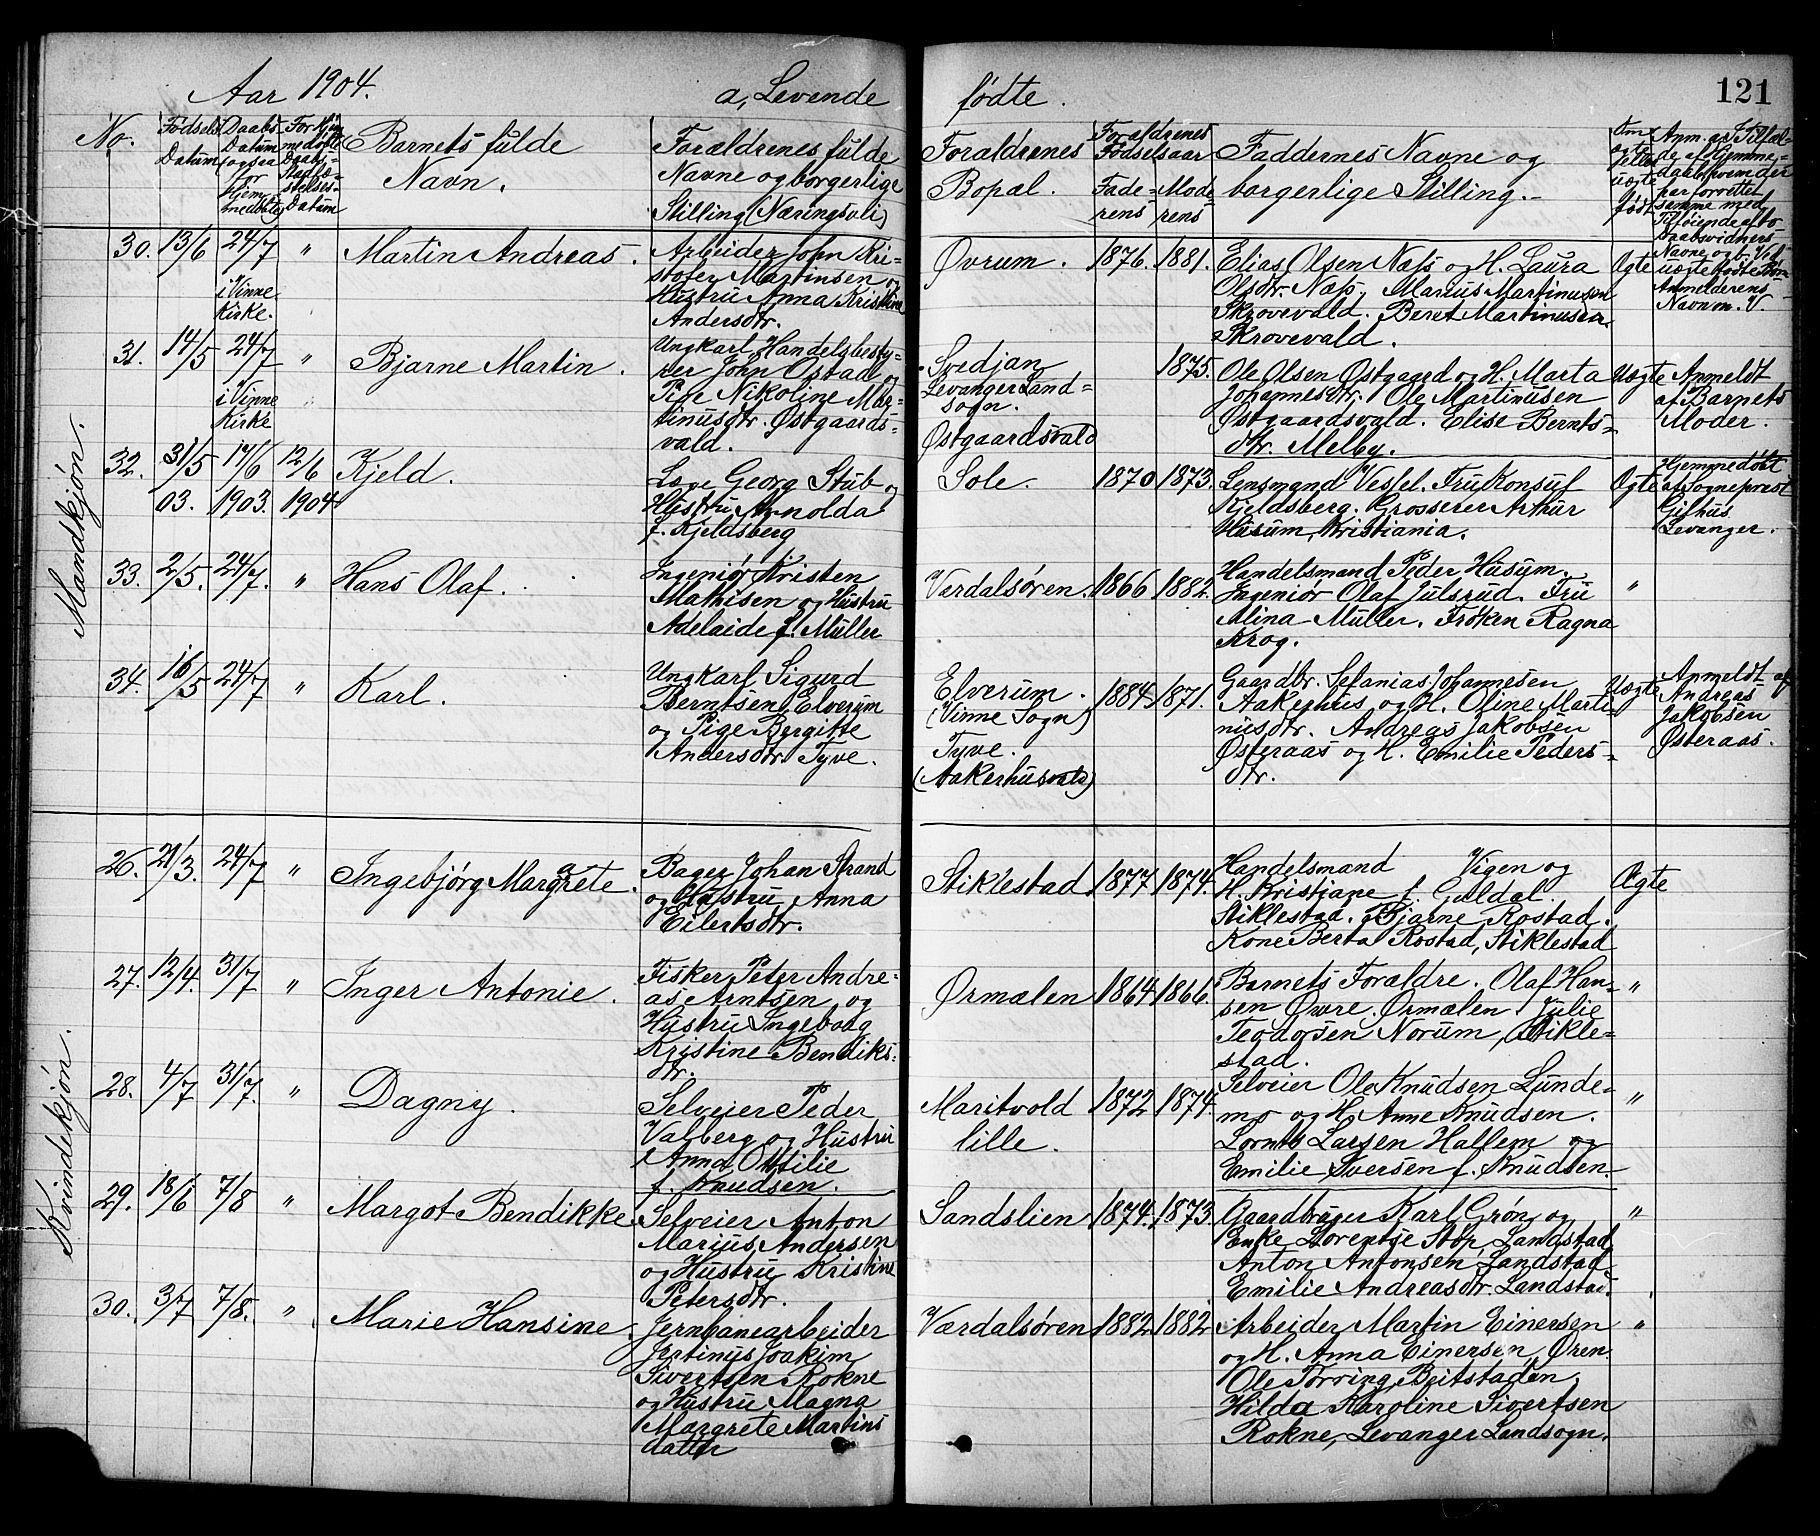 Aar 1904.
a, Levende
fødte.
121
No.
Fødsels Datum
Daabs Datum (ogsaa for Hjemmedøbte)
For Hjemmedøbte Daabs-Stadfæstelses-Datum
Barnets fulde
Navn.
Forældrenes fulde
Navne og borgerlige
Stilling (Næringsvei)
Forældrenes
Bopæl.
Forældrenes
Fødselsaar
Faderens
Moderens
Faddernes Navne og
borgerlige Stilling.
Om ægte eller uægte født
Mandkjøn.
30. 13/6 24/7 " Martin Andreas.
i Vinne
Kirke.
Arbeider John Kri-
stofer Martinsen og
Hustru Anna Kristine
Andersdtr.
Øvrum. 1876. 1881.
Elias Olsen Næss og H. Laura
Olsdtr. Næss, Marius Martinusen
Skrovevald. Beret Martinusen
Skrovevald.
Ægte
31. 14/5 24/7 " Bjarne Martin.
i Vinne
Kirke
Ungkarl Handelsbesty-
rer John Østad og
Pige Nikoline Mar-
tinusdtr. Østgaards-
vald.
Svedjan
Levanger Land-
sogn.
Østgaardsvald
1875.
Ole Olsen Østgaard og H. Marta
Johannesdtr. Ole Martinusen
Østgaardsvald. Elise Bernts-
dtr. Melby.
Uægte
Anmeldt
af Barnets
Moder.
32. 31/5 19/6 12/6 Kjeld.
03. 1903. 1904
Læge Georg Stub og
Hustru Arnolda
f. Kjeldsberg
Sole. 1870 1873.
Lensmand Vessel. Fru Konsul
Kjeldsberg. Grosserer Arthur
Husum, Kristiania.
Ægte
Hjemmedøbt
af Sogneprest
Gilhus
Levanger.
33. 2/5. 24/7. " Hans Olaf.
Ingeniør Kristen
Mathisen og Hustru
Adelaide f. Müller
Værdalsøren. 1866 1882.
Handelsmand Peder Husum.
Ingeniør Olaf Julsrud. Fru
Alina Müller. Frøken Ragna
Krog.
"
34. 16/5 24/7 " Karl.
Ungkarl Sigurd
Berntsen Elverum
og Pige Bergitte
Andersdtr. Tyve.
Elverum.
(Vinne Sogn)
Tyve.
(Aakerhusvald)
1884 1871.
Gaardbr. Sefanias Johannesen
Aakerhus og H. Oline Marti-
nusdtr. Andreas Jakobsen
Østeraas og H. Emilie Peders-
dtr.
Uægte
Anmeldt af
Andreas
Jakobsen
Østeraas.
Kvindekjøn.
26. 21/3. 24/7 " Ingebjørg Margrete.
Bager Johan Strand
og Hustru Anna
Eilertsdtr.
Stiklestad 1877 1874.
Handelsmand Vigen og
H. Kristiane f. Guldal.
Stiklestad. Bjarne Rostad.
Kone Berta Rostad, Stiklestad
Ægte
27. 12/4. 31/7 " Inger Antonie.
Fisker Peter Andre-
as Arntsen og
Hustru Ingeborg
Kristine Bendiks-
dtr.
Ørmælen 1864 1866.
Barnets Forældre. Olaf Han-
sen Øvre, Ørmælen. Julie
Teodorsen Norum, Stikle-
stad.
"
28. 4/7 31/7. " Dagny.
Selveier Peder
Valberg og Hustru
Anna Otilie
f. Knudsen.
Maritvold
lille.
1872 1874.
Selveier Ole Knudsen Lunde-
mo og H. Anne Knudsen.
Lornts Larsen Hallem og
Emilie Iversen f. Knudsen.
"
29. 18/6 7/8 " Margot Bendikke
Selveier Anton
Marius Andersen
og Hustru Kristine
Petersdtr.
Sandslien 1874. 1873.
Gaardbruger Karl Grøn og
Enke Lorentse Stop, Landstad
Anton Antonsen Landstad.
Emilie Andreasdtr. Landstad.
"
30. 3/7 7/8. " Marie Hansine.
Jernbanearbeider
Jertinus Joakim
Sivertsen Rokne
og Hustru Magna
Margrete Martins
datter
Værdalsøren 1882. 1882.
Arbeider Martin Einersen
og H. Anna Einersen, Øren.
Ole Tørring, Beitstaden.
Hilda Karoline Sivertsen
Rokne, Levanger Landsogn.
"